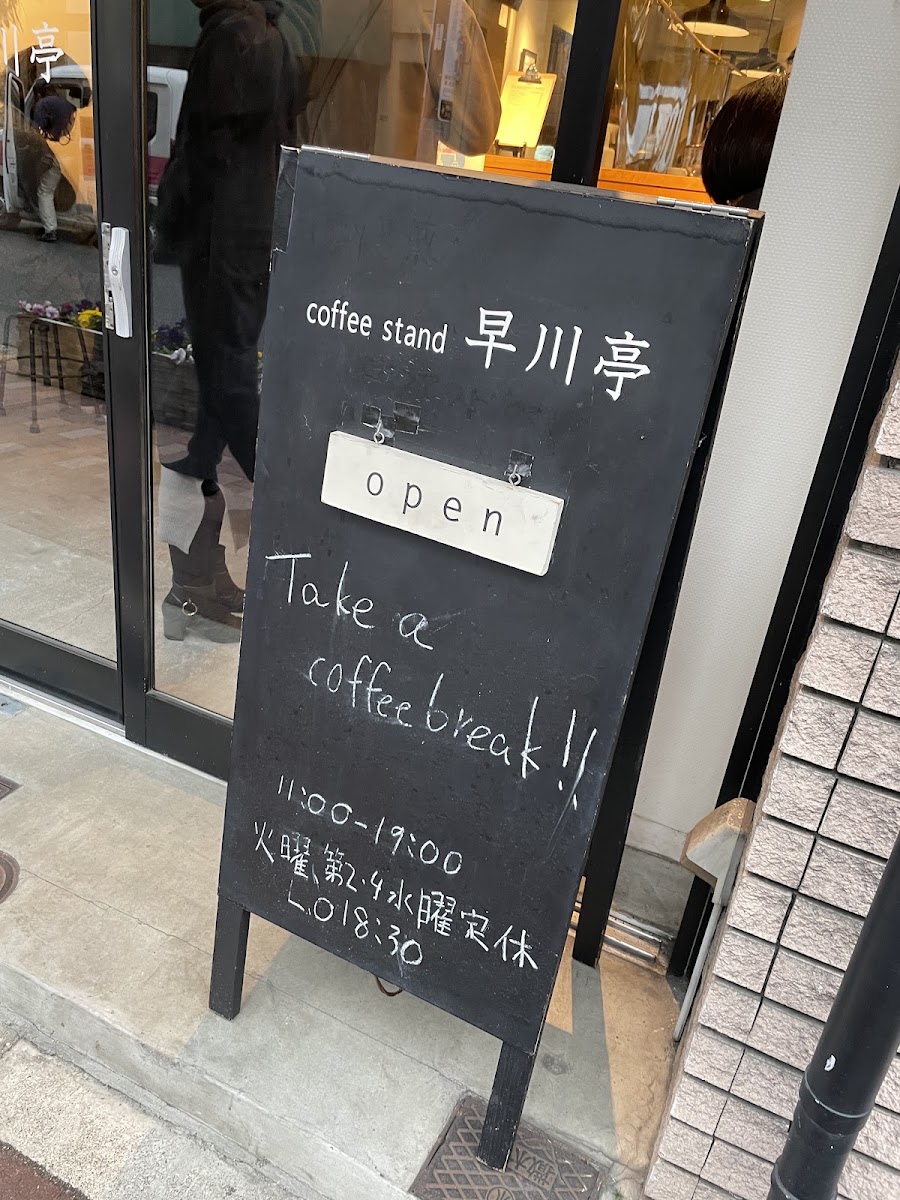 川亭
coffee stand 早川亭
open
Take a
coffee break!!
11:00-19:00
火曜、第2・4水曜定休
L.O 18:30